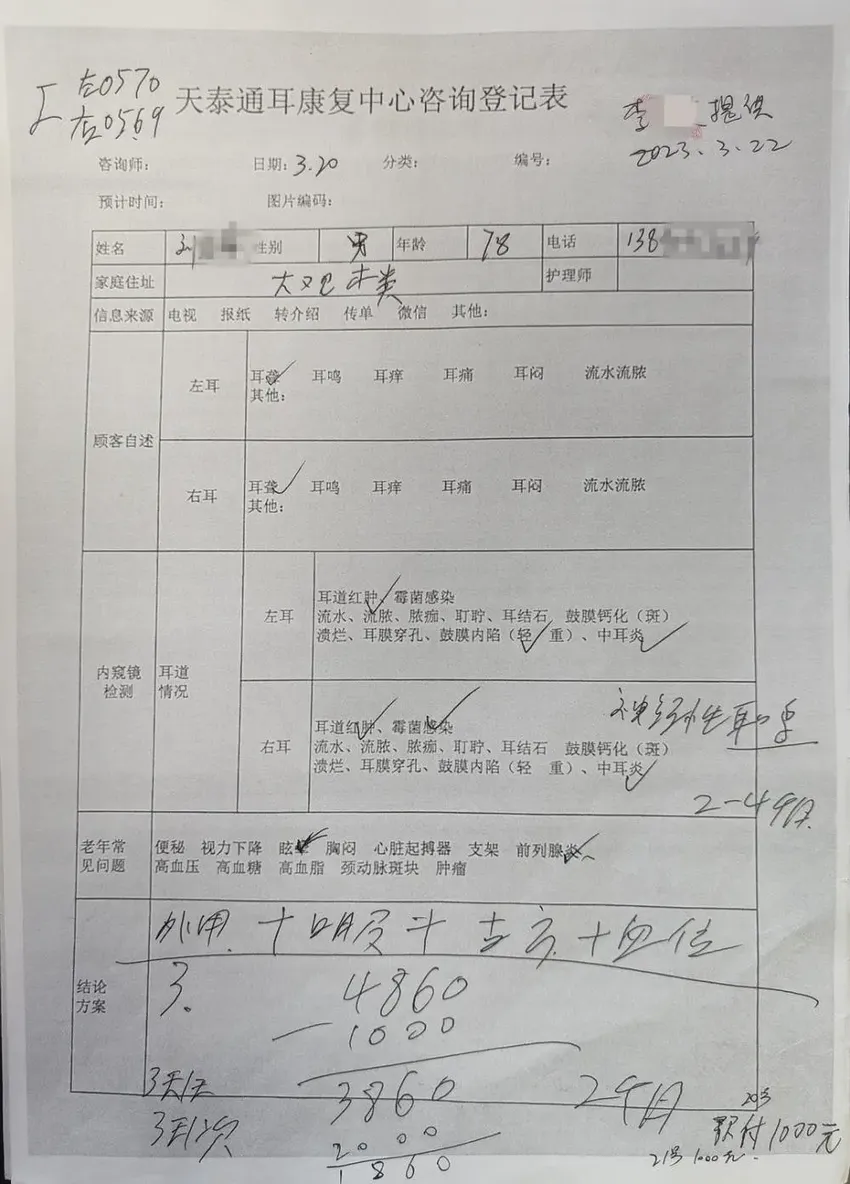 左0570
右0569
天泰通耳康复中心咨询登记表
李 提供
2023.3.22
咨询师： 日期：3.20 分类： 编号：
预计时间： 图片编码：
姓名 性别 男 年龄 78 电话 138
家庭住址 护理师
信息来源 电视 报纸 转介绍 传单 微信 其他：
顾客自述
左耳
耳聋 耳鸣 耳痒 耳痛 耳闷 流水流脓
其他：
右耳
耳聋 耳鸣 耳痒 耳痛 耳闷 流水流脓
其他：
内窥镜
检测
耳道
情况
左耳
耳道红肿、霉菌感染
流水、流脓、脓痂、耵聍、耳结石 鼓膜钙化（斑）
溃烂、耳膜穿孔、鼓膜内陷（轻 重）、中耳炎
右耳
耳道红肿、霉菌感染
流水、流脓、脓痂、耵聍、耳结石 鼓膜钙化（斑）
溃烂、耳膜穿孔、鼓膜内陷（轻 重）、中耳炎
神经性耳聋
2-4个月
老年常
见问题
便秘 视力下降 眩晕 胸闷 心脏起搏器 支架 前列腺炎
高血压 高血糖 高血脂 颈动脉斑块 肿瘤
结论
方案
外用+口服+ +穴位
3. 4860
1000
3860 2个月
3天1次
2000
1860
20号
付1000元
21号1000元